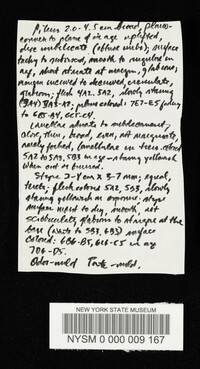 Pileus 2.0-4.5 cm broad, plano-
convex to plane or in age uplifted,
disc umbilicate (obtuse umbo), surface
tacky to subviscid, smooth to rugulose in
age, about striate at margin, glabrous,
margin incurved to decurved, crenulate,
glabrous; flesh 4A2, 5A2, slowly staining
(3A4) 3A8-A7; pileus colored: 7E7-E5 fading
to 6B5-B4, 6C5-C4.
Lamellae adnate to subdecurrent,
close, thin, broad, even, at margin
rarely forked, lamellulae in tiers colored
5A2 to 5A3, 5B3 in age - staining yellowish
when cut or bruised.
Stipe 2-4 cm x 3-7 mm, equal,
terete; flesh colored 5A2, 5B3, slowly
staining yellowish on exposure. stipe
surface moist to dry, smooth, not
scrobiculate, glabrous to strigose at the
base (white to 5B3, 6B3) surface
colored: 6B6-B5, 6C6-C5 in age
7D6-D5.
Odor - mild Taste - mild.
NEW YORK STATE MUSEUM
NYSM 0 000 009 167